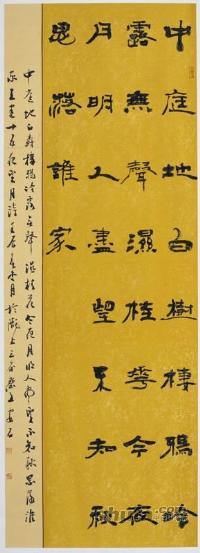 中庭地白樹棲鴉冷
露無聲濕桂華今夜
月明人盡望不知秋
思落誰家
中庭地白樹棲鴉冷露無聲濕桂花今夜月明人盡望不知秋思落誰
家王建十五夜望月詩